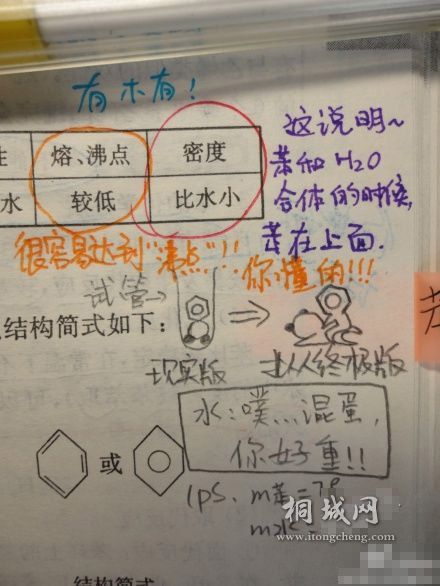 有木有!
熔、沸点
密度
水
较低
比水小
这说明~
苯和H2O
合体的时候,
苯在上面.
很容易达到"沸点"!!
你懂的!!!
试管→
结构简式如下:
⇒
现实版
终极版
水:噗…混蛋,
你好重!!
或
(ps. m苯=78
m水=
桐城网
www.itongcheng.com
结构简式